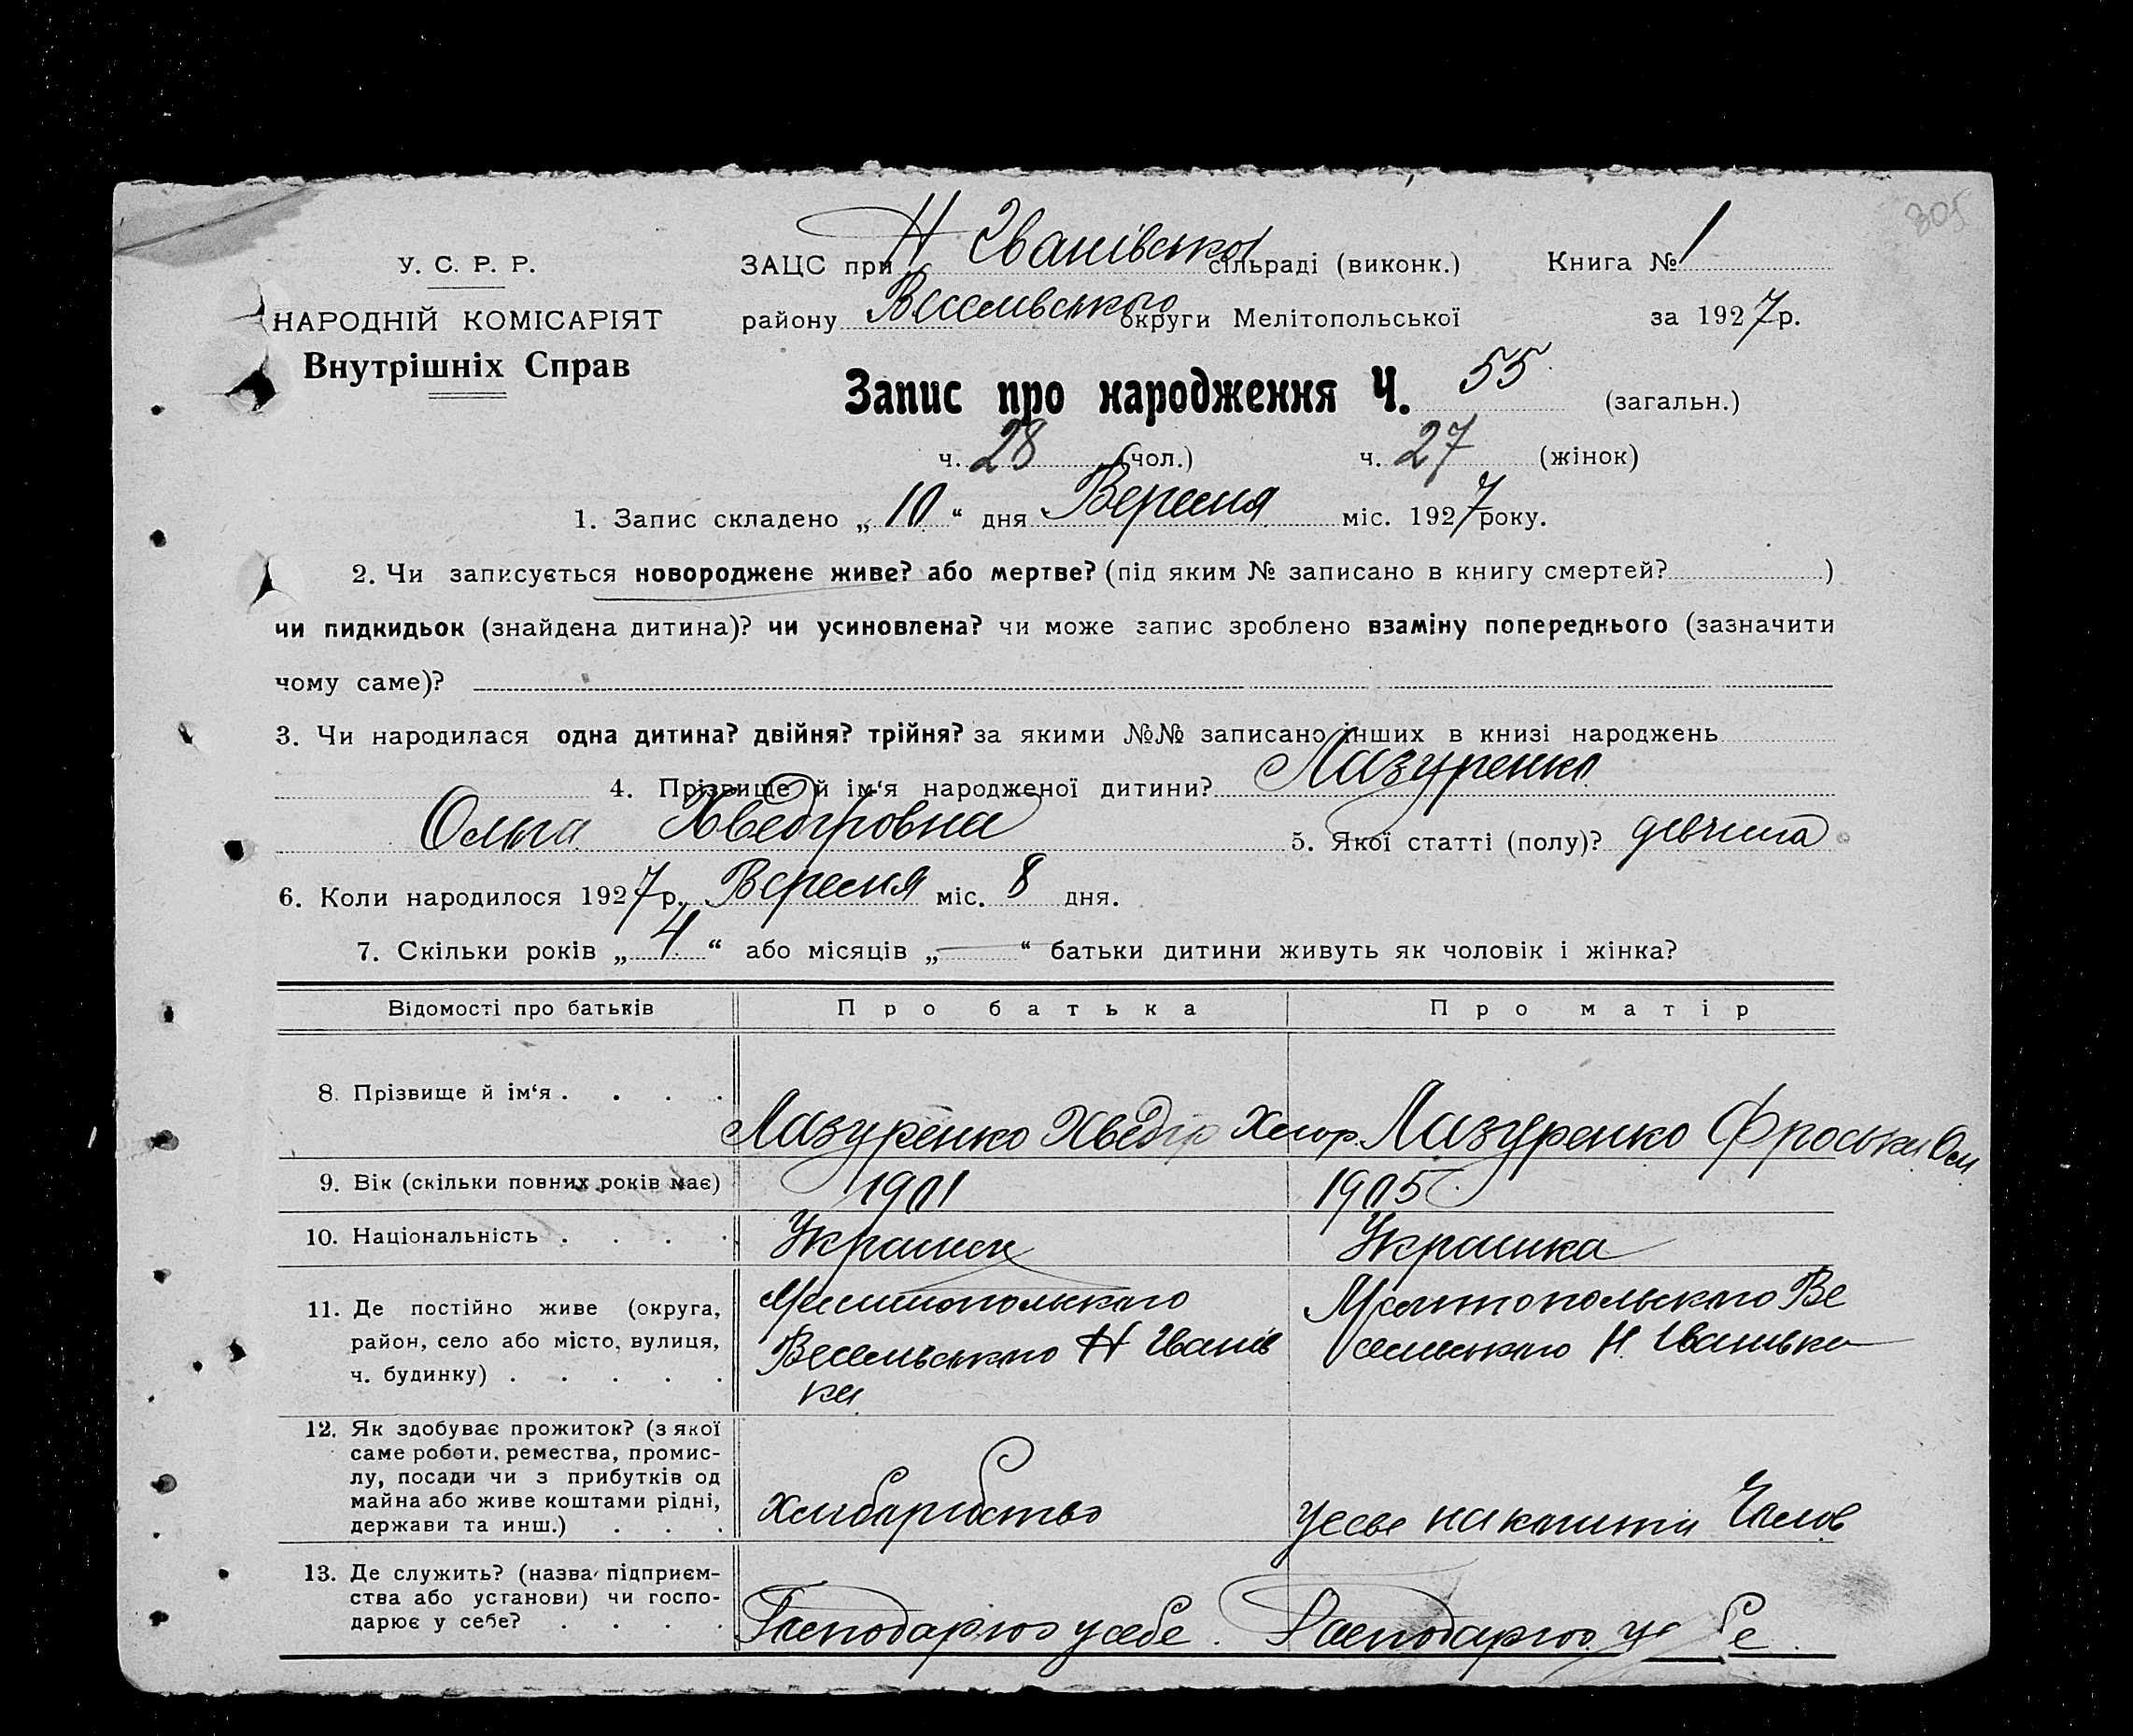 305
У. С. Р. Р.
НАРОДНІЙ КОМІСАРІЯТ
Внутрішніх Справ
ЗАЦС при Н Іванівської сільраді (виконк.) Книга № 1
району Веселівського округи Мелітопольської за 1927 р.
Запис про народження Ч. 55 (загальн.)
ч. 28 (чол.) ч. 27 (жінок)
1. Запис складено „ 10 “ дня Вересня міс. 1927 року.
2. Чи записується новороджене живе? або мертве? (під яким № записано в книгу смертей? )
чи пидкидьок (знайдена дитина)? чи усиновлена? чи може запис зроблено взаміну попереднього (зазначити
чому саме)?
3. Чи народилася одна дитина? двійня? трійня? за якими №№ записано інших в книзі народжень
4. Прізвище й ім‘я народженої дитини? Лазуренко
Ольга Хведіровна 5. Якої статті (полу)? девчина
6. Коли народилося 1927 р. Вересня міс. 8 дня.
7. Скільки років „ 4 “ або місяців „ — “ батьки дитини живуть як чоловік і жінка?
Відомості про батьків Про батька Про матір
8. Прізвище й ім‘я . . . . Лазуренко Хведір Лазуренко Фроська
9. Вік (скільки повних років має) 1901 1905
10. Національність . . . . Украинец Украинка
11. Де постійно живе (округа, район, село або місто, вулиця, ч. будинку) . . . . .
Мелитопольского Мелитопольского Ве
Весельского Н Іванів селевского Н. Іванивка
ка
12. Як здобуває прожиток? (з якої саме роботи, ремества, промислу, посади чи з прибутків од майна або живе коштами рідні, держави та инш.) . . .
хлибаробство на кошти Чалов
13. Де служить? (назва підприємства або установи) чи господарює у себе? . . . .
Господарює у себе. Господарює у себе.